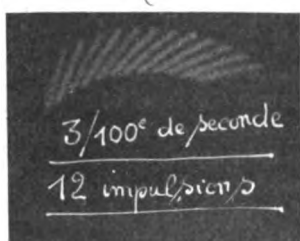 3/100e de seconde
12 impulsions